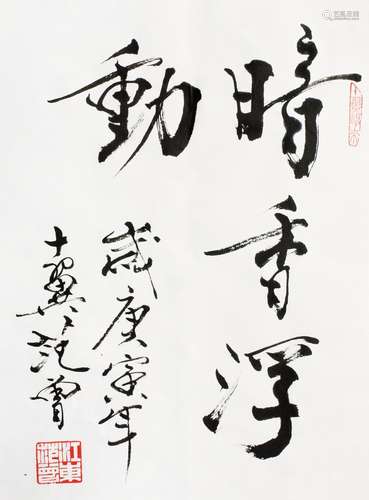 暗香浮
動
歲庚寅年
十翼范曾
江東范曾